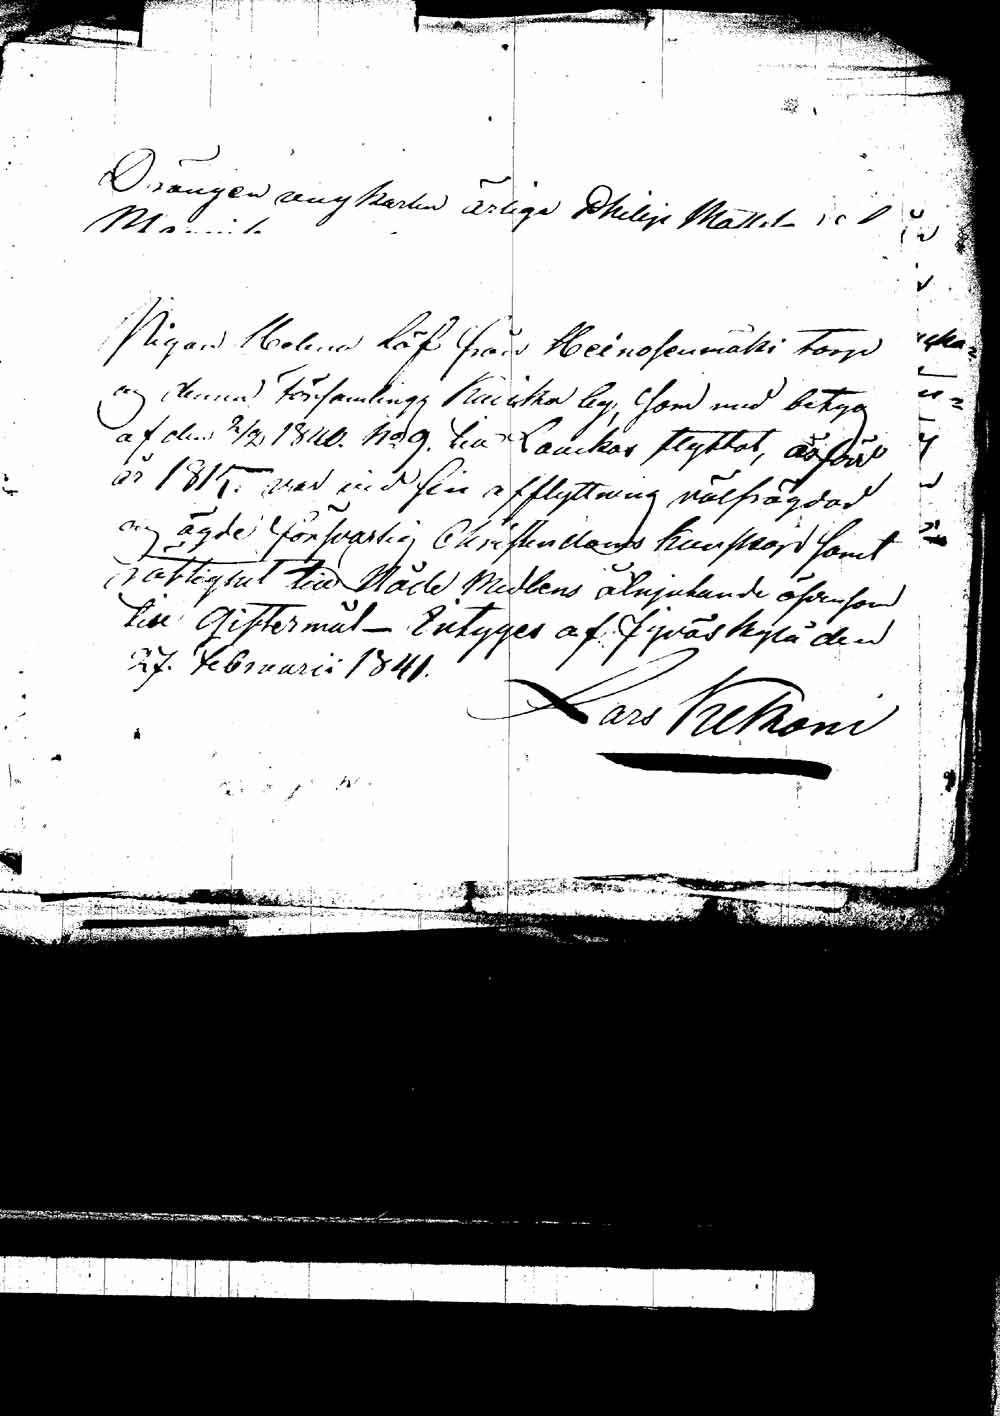 Drängen ung karlen ärlige Philip Matts
Pigan Helena Löf från Heinosenmäki torp
og denna Församlings Kuikka by, som med betyg
af den 2/2 1840. No 9. till Laukas flyttat, är född
år 1815. var vid sin afflyttning välfrägdad
og ägde försvarlig Christendoms kunskap samt
rättighet till Nåde Medlens åtnjutande äfvensom
till Giftermål – Intyges af Jyväskylä den
27. Februarii 1841.
Lars Kekoni